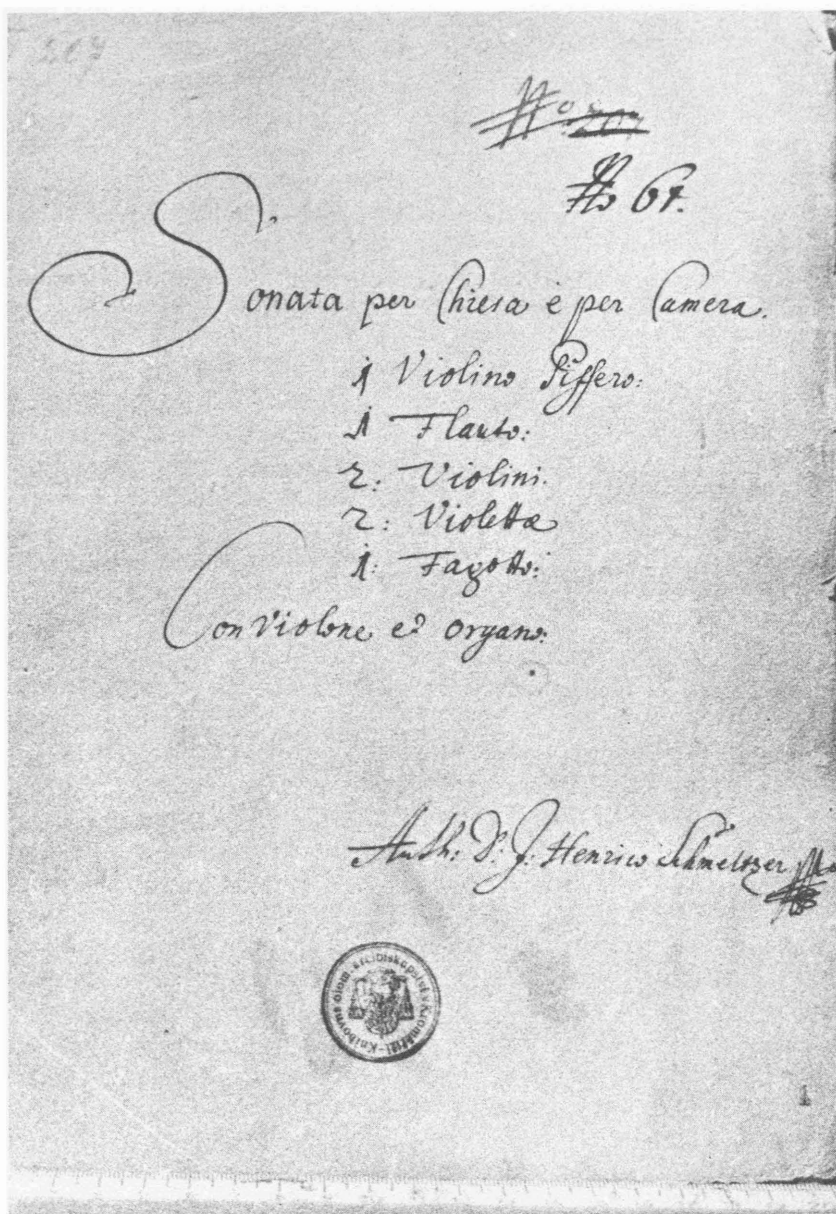 207
No 207
No 67.
Sonata per Chiesa è per Camera.
1 Violino Piffero:
1 Flauto:
2: Violini.
2: Violettæ
1: Fagotto:
Con Violone e? Organo:
Auth: D: J: Henrico Schmeltzer
Knihovna olom. arcibiskupství v Kroměříži
1